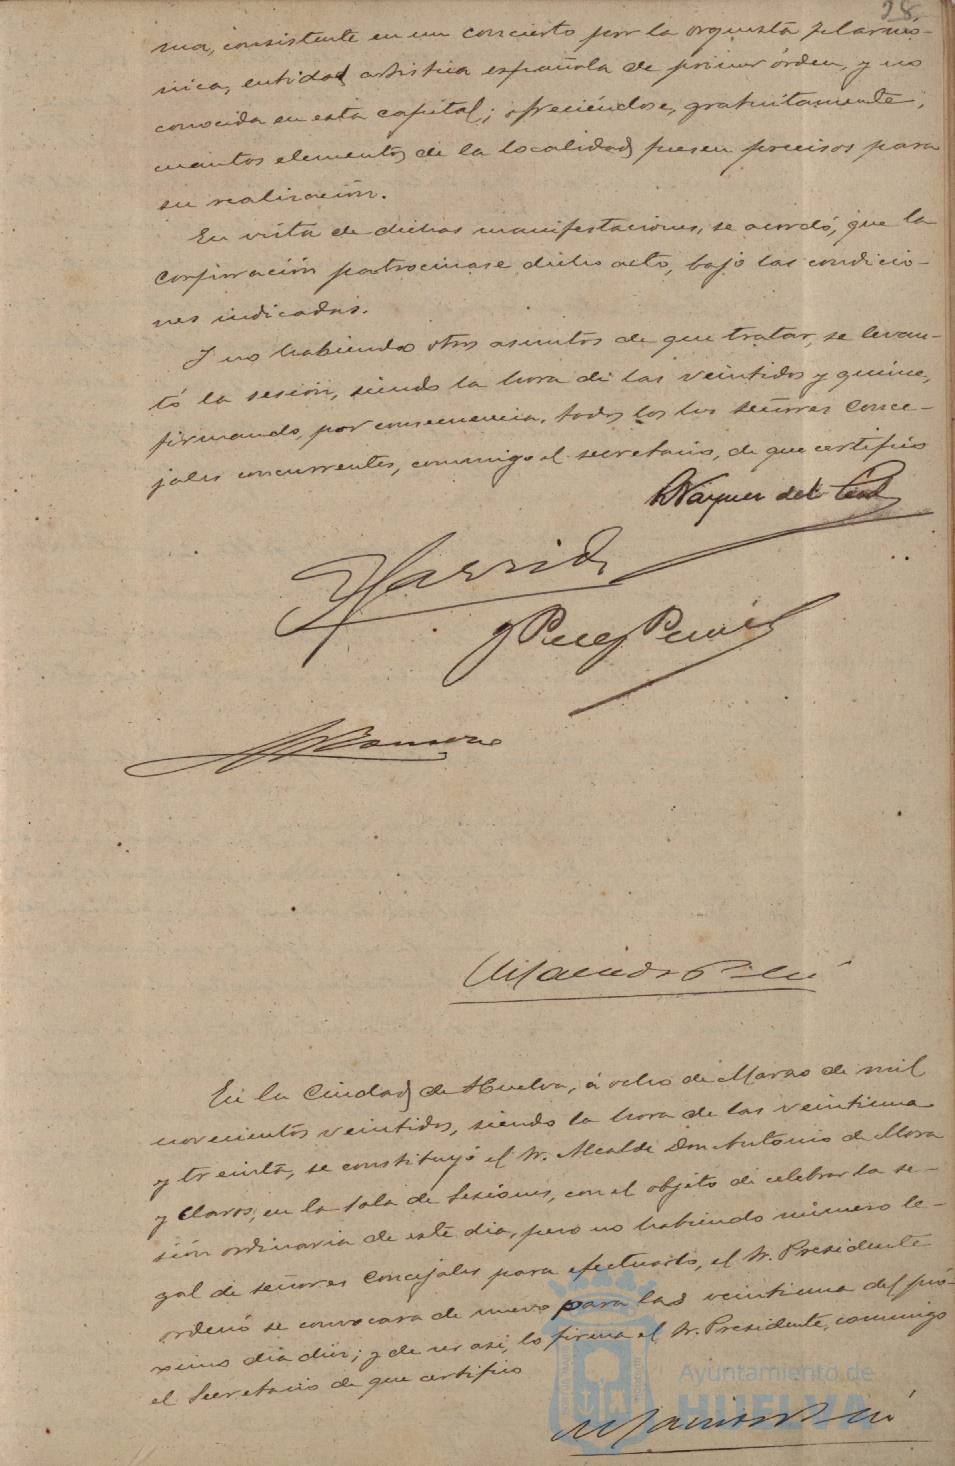 28.
ma, consistente en un concierto por la orquesta filarmó-
nica, entidad artistica española de primer órden, y no
conocida en esta capital; ofreciéndose, gratuitamente,
cuantos elementos de la localidad fuesen precisos para
su realización.
En vista de dichas manifestaciones, se acordó, que la
Corporación patrocinase dicho acto, bajo las condicio-
nes indicadas.
Y no habiendo otros asuntos de que tratar, se levan-
tó la sesión, siendo la hora de las veintidos y quince,
firmando, por consecuencia, todos los los señores Conce-
jales concurrentes, conmigo el secretario, de que certifico
Vazquez del
Garrido
Perez
Romero
En la Ciudad de Huelva, á ocho de Marzo de mil
novecientos veintidos, siendo la hora de las veintiuna
y treinta, se constituyó el Sr. Alcalde Don Antonio de Mora
y Claros, en la Sala de Sesiones, con el objeto de celebrar la se-
sión ordinaria de este dia, pero no habiendo número le-
gal de señores Concejales para efectuarlo, el Sr. Presidente
ordenó se convocara de nuevo para las veintiuna del pró-
ximo dia diez; y de ser asi, lo firma el Sr. Presidente, conmigo
el Secretario de que certifico
Ayuntamiento de
HUELVA